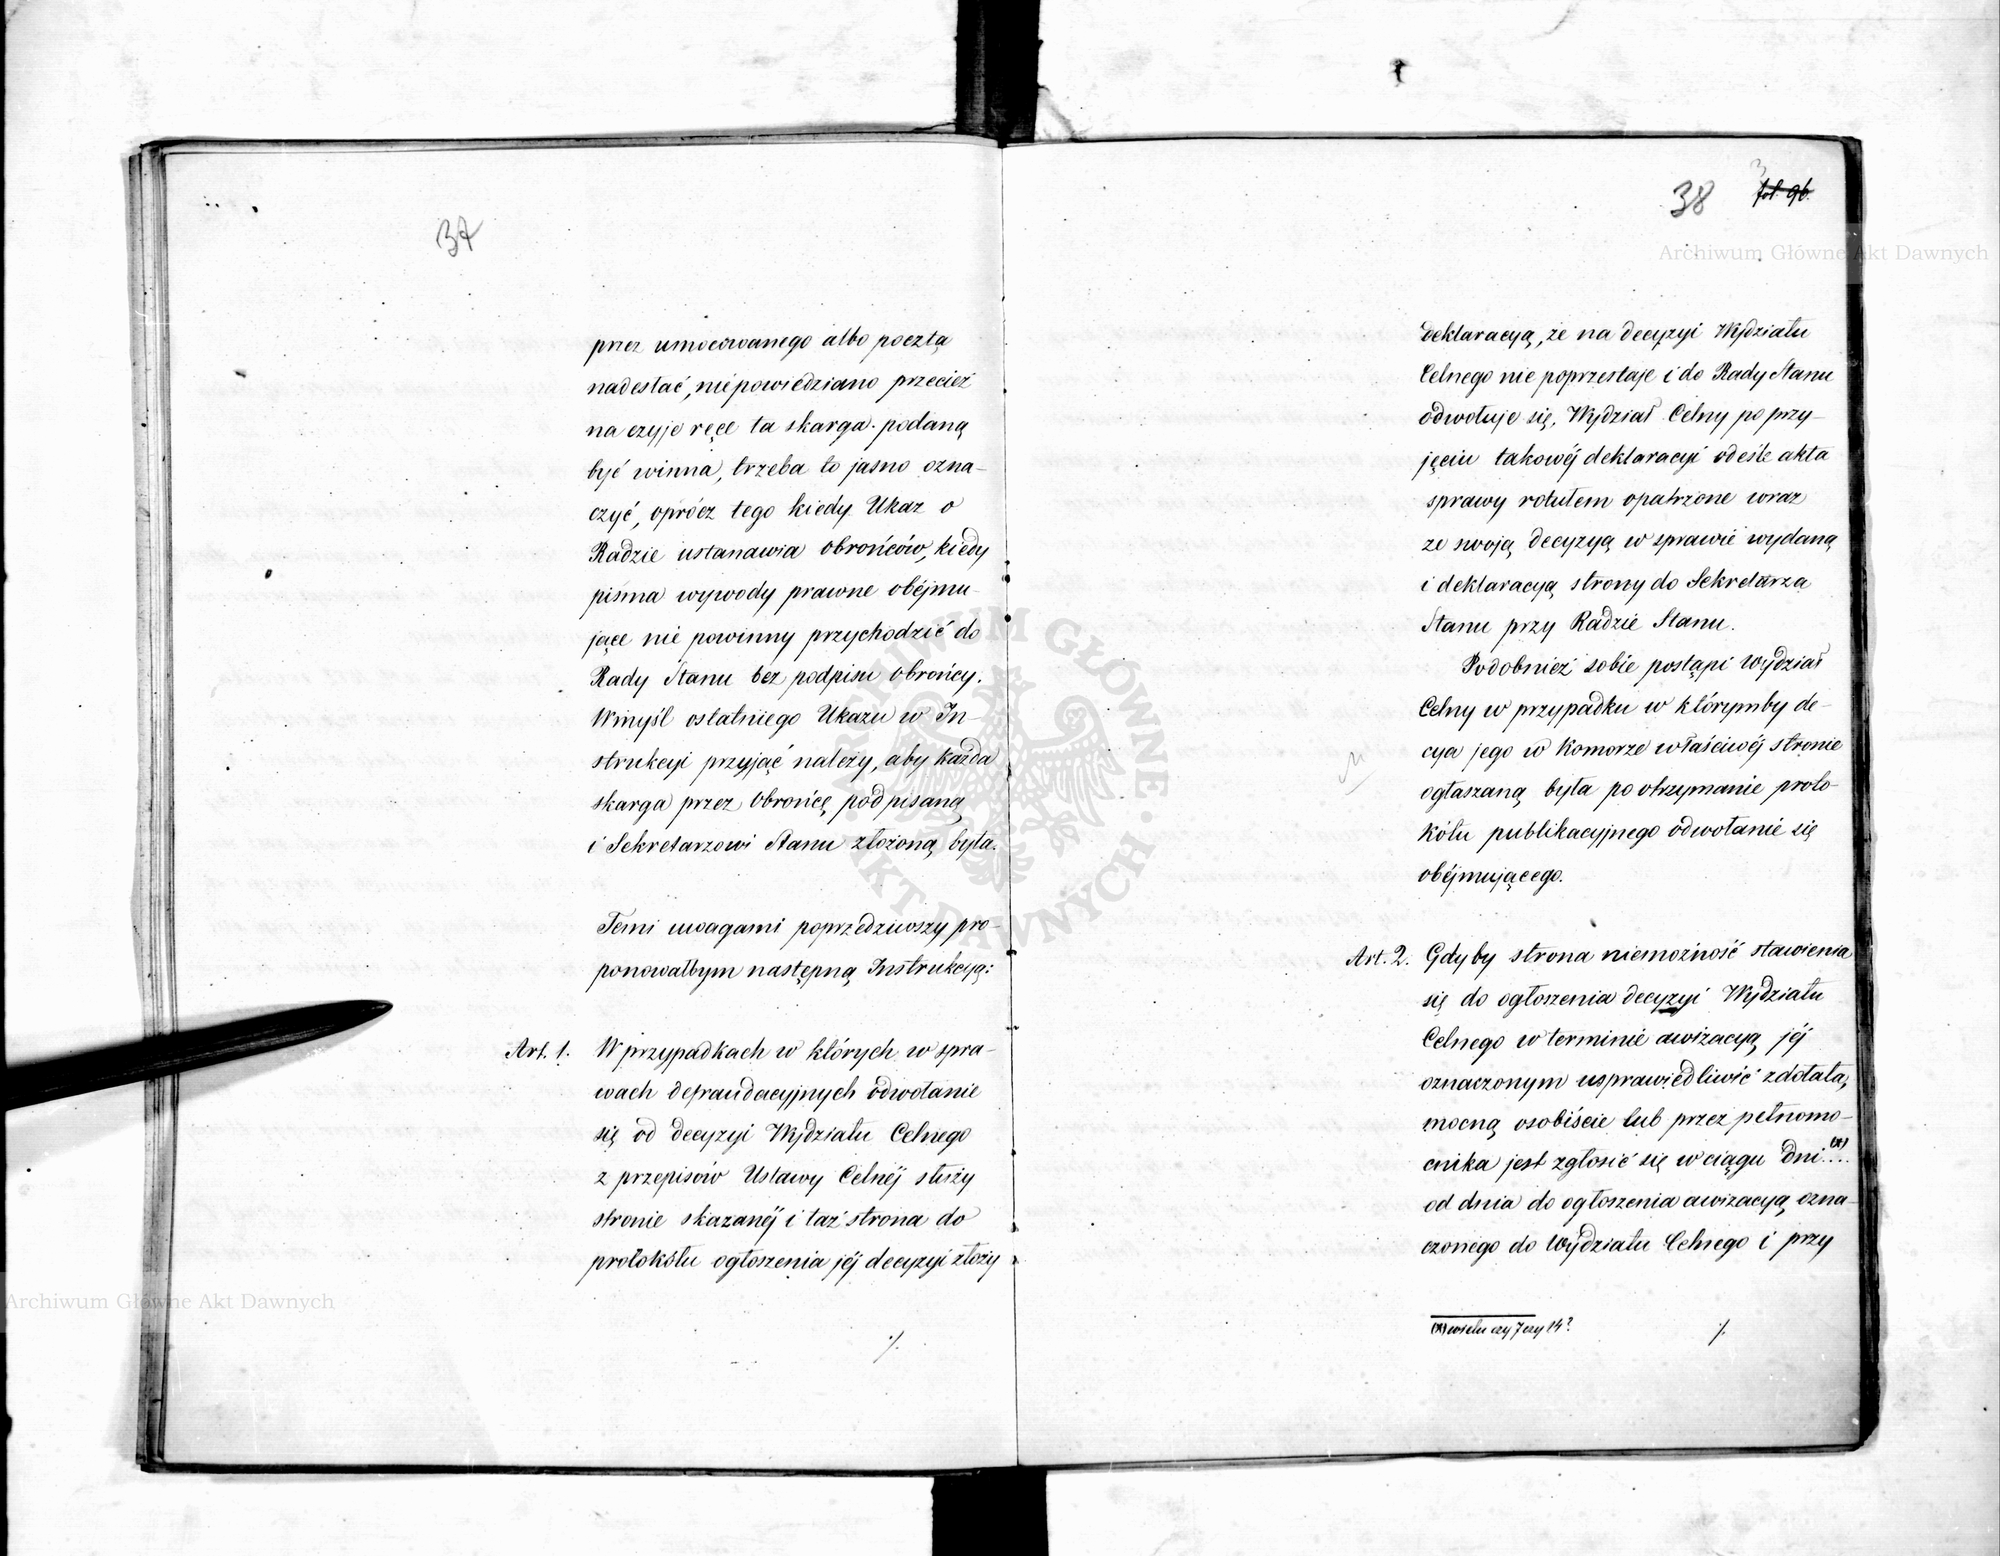 37
przez umocowanego albo pocztą
nadesłać, niepowiedziano przecież
na czyje ręce ta skarga podaną
być winna, trzeba to jasno ozna-
czyć, oprócz tego kiedy Ukaz o
Radzie ustanawia obrońców, kiedy
pisma wywody prawne obéjmu-
jące nie powinny przychodzić do
Rady Stanu bez podpisu obrońcy.
Wmyśl ostatniego Ukazu w In-
strukcyi przyjąć należy, aby każda
skarga przez Obrońcę podpisaną
i Sekretarzowi Stanu złożoną była.
Temi uwagami poprzedziwszy pro-
ponowałbym następną Instrukcyą:
Art. 1. W przypadkach w których w spra-
wach defraudacyjnych odwołanie
się od decyzyi Wydziału Celnego
z przepisów Ustawy Celnéj służy
stronie skazanéj i taż strona do
protokółu ogłoszenia jéj decyzyi złoży
./.
38 fol. 96.
deklaracyą, że na decyzyi Wydziału
Celnego nie poprzestaje i do Rady Stanu
odwołuje się, Wydział Celny po przy-
jęciu takowéj deklaracyi odeśle akta
sprawy rotułem opatrzone wraz
ze swoją decyzyą w sprawie wydaną
i deklaracyą strony do Sekretarza
Stanu przy Radzie Stanu.
Podobnież sobie postąpi wydział
Celny w przypadku w którymby de-
cya jego w Komorze właściwéj stronie
ogłaszaną była po otrzymanie proto-
kółu publikacyjnego odwołanie się
obéjmującego.
Art. 2. Gdyby strona niemożność stawienia
się do ogłoszenia decyzyi Wydziału
Celnego w terminie awizacyą jéj
oznaczonym usprawiedliwić zdołała,
mocną osobiście lub przez pełnomo-
cnika jest zgłosić się w ciągu dni (x)...
od dnia do ogłoszenia awizacyą ozna-
czonego do Wydziału Celnego i przy
(x) wielu czy 7 czy 14?
./.
Archiwum Główne Akt Dawnych
Archiwum Główne Akt Dawnych
ARCHIWUM GŁÓWNE AKT DAWNYCH